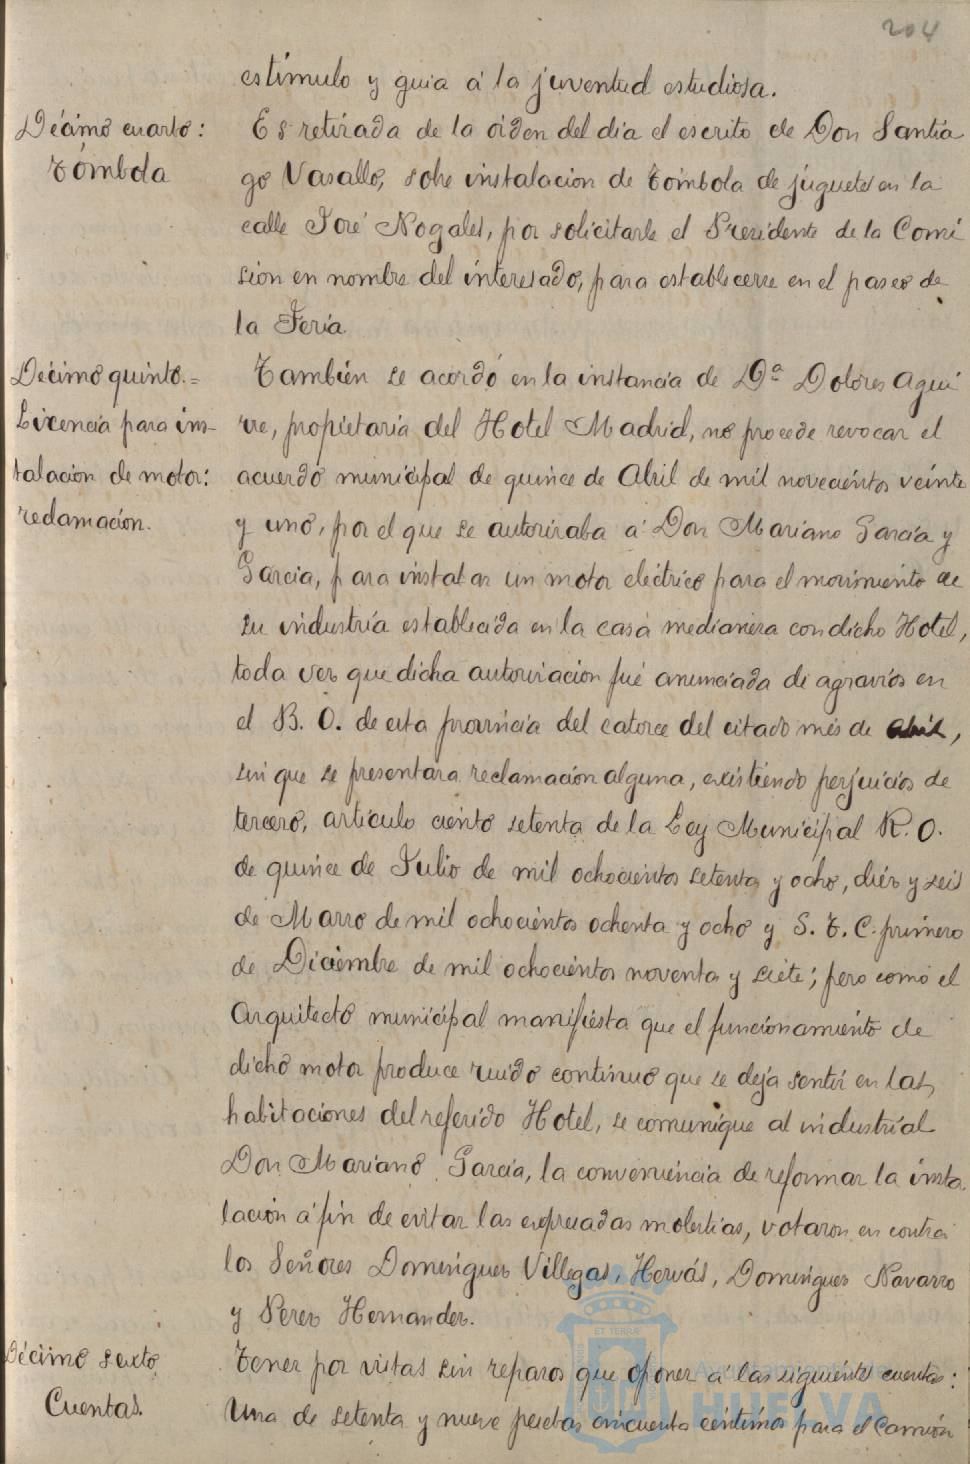 204
estímulo y guia á la juventud estudiosa.
Décimo cuarto:
Tómbola
Es retirada de la orden del dia el escrito de Don Santia
go Vasallo, sobre instalacion de Tómbola de juguetes en la
calle José Nogales, por solicitarle el Presidente de la Comi
sion en nombre del interesado, para establecerse en el paseo de
la Feria
Décimo quinto.=
Licencia para ins-
talacion de motor:
reclamacion.
También se acordó en la instancia de Dª Dolores Agui
rre, propietaria del Hotel Madrid, no procede revocar el
acuerdo municipal de quince de Abril de mil novecientos veinte
y uno, por el que se autorizaba á Don Mariano Garcia y
Garcia, para instalar un motor eléctrico para el movimiento de
su industria establecida en la casa medianera con dicho Hotel,
toda vez que dicha autorizacion fué anunciada de agravios en
el B. O. de esta provincia del catorce del citado mes de abril,
sin que se presentara reclamación alguna, existiendo perjuicios de
tercero, artículo ciento setenta de la Ley Municipal R. O.
de quince de Julio de mil ochocientos setenta y ocho, diez y seis
de Marzo de mil ochocientos ochenta y ocho y S. T. C. primero
de Diciembre de mil ochocientos noventa y siete; pero como el
Arquitecto municipal manifiesta que el funcionamiento de
dicho motor produce ruido continuo que se deja sentir en las
habitaciones del referido Hotel, se comunique al industrial
Don Mariano Garcia, la conveniencia de reformar la insta
lación á fin de evitar las expresadas molestias, votaron en contra
los Señores Dominguez Villegas, Hervás, Dominguez Navarro
y Perez Hernandez.
Décimo sexto
Cuentas.
Tener por vistas sin reparos que oponer á las siguientes cuentas:
Una de setenta y nueve pesetas cincuenta centimos para el Camión
ET TERRÆ
Ayuntamiento de
HUELVA